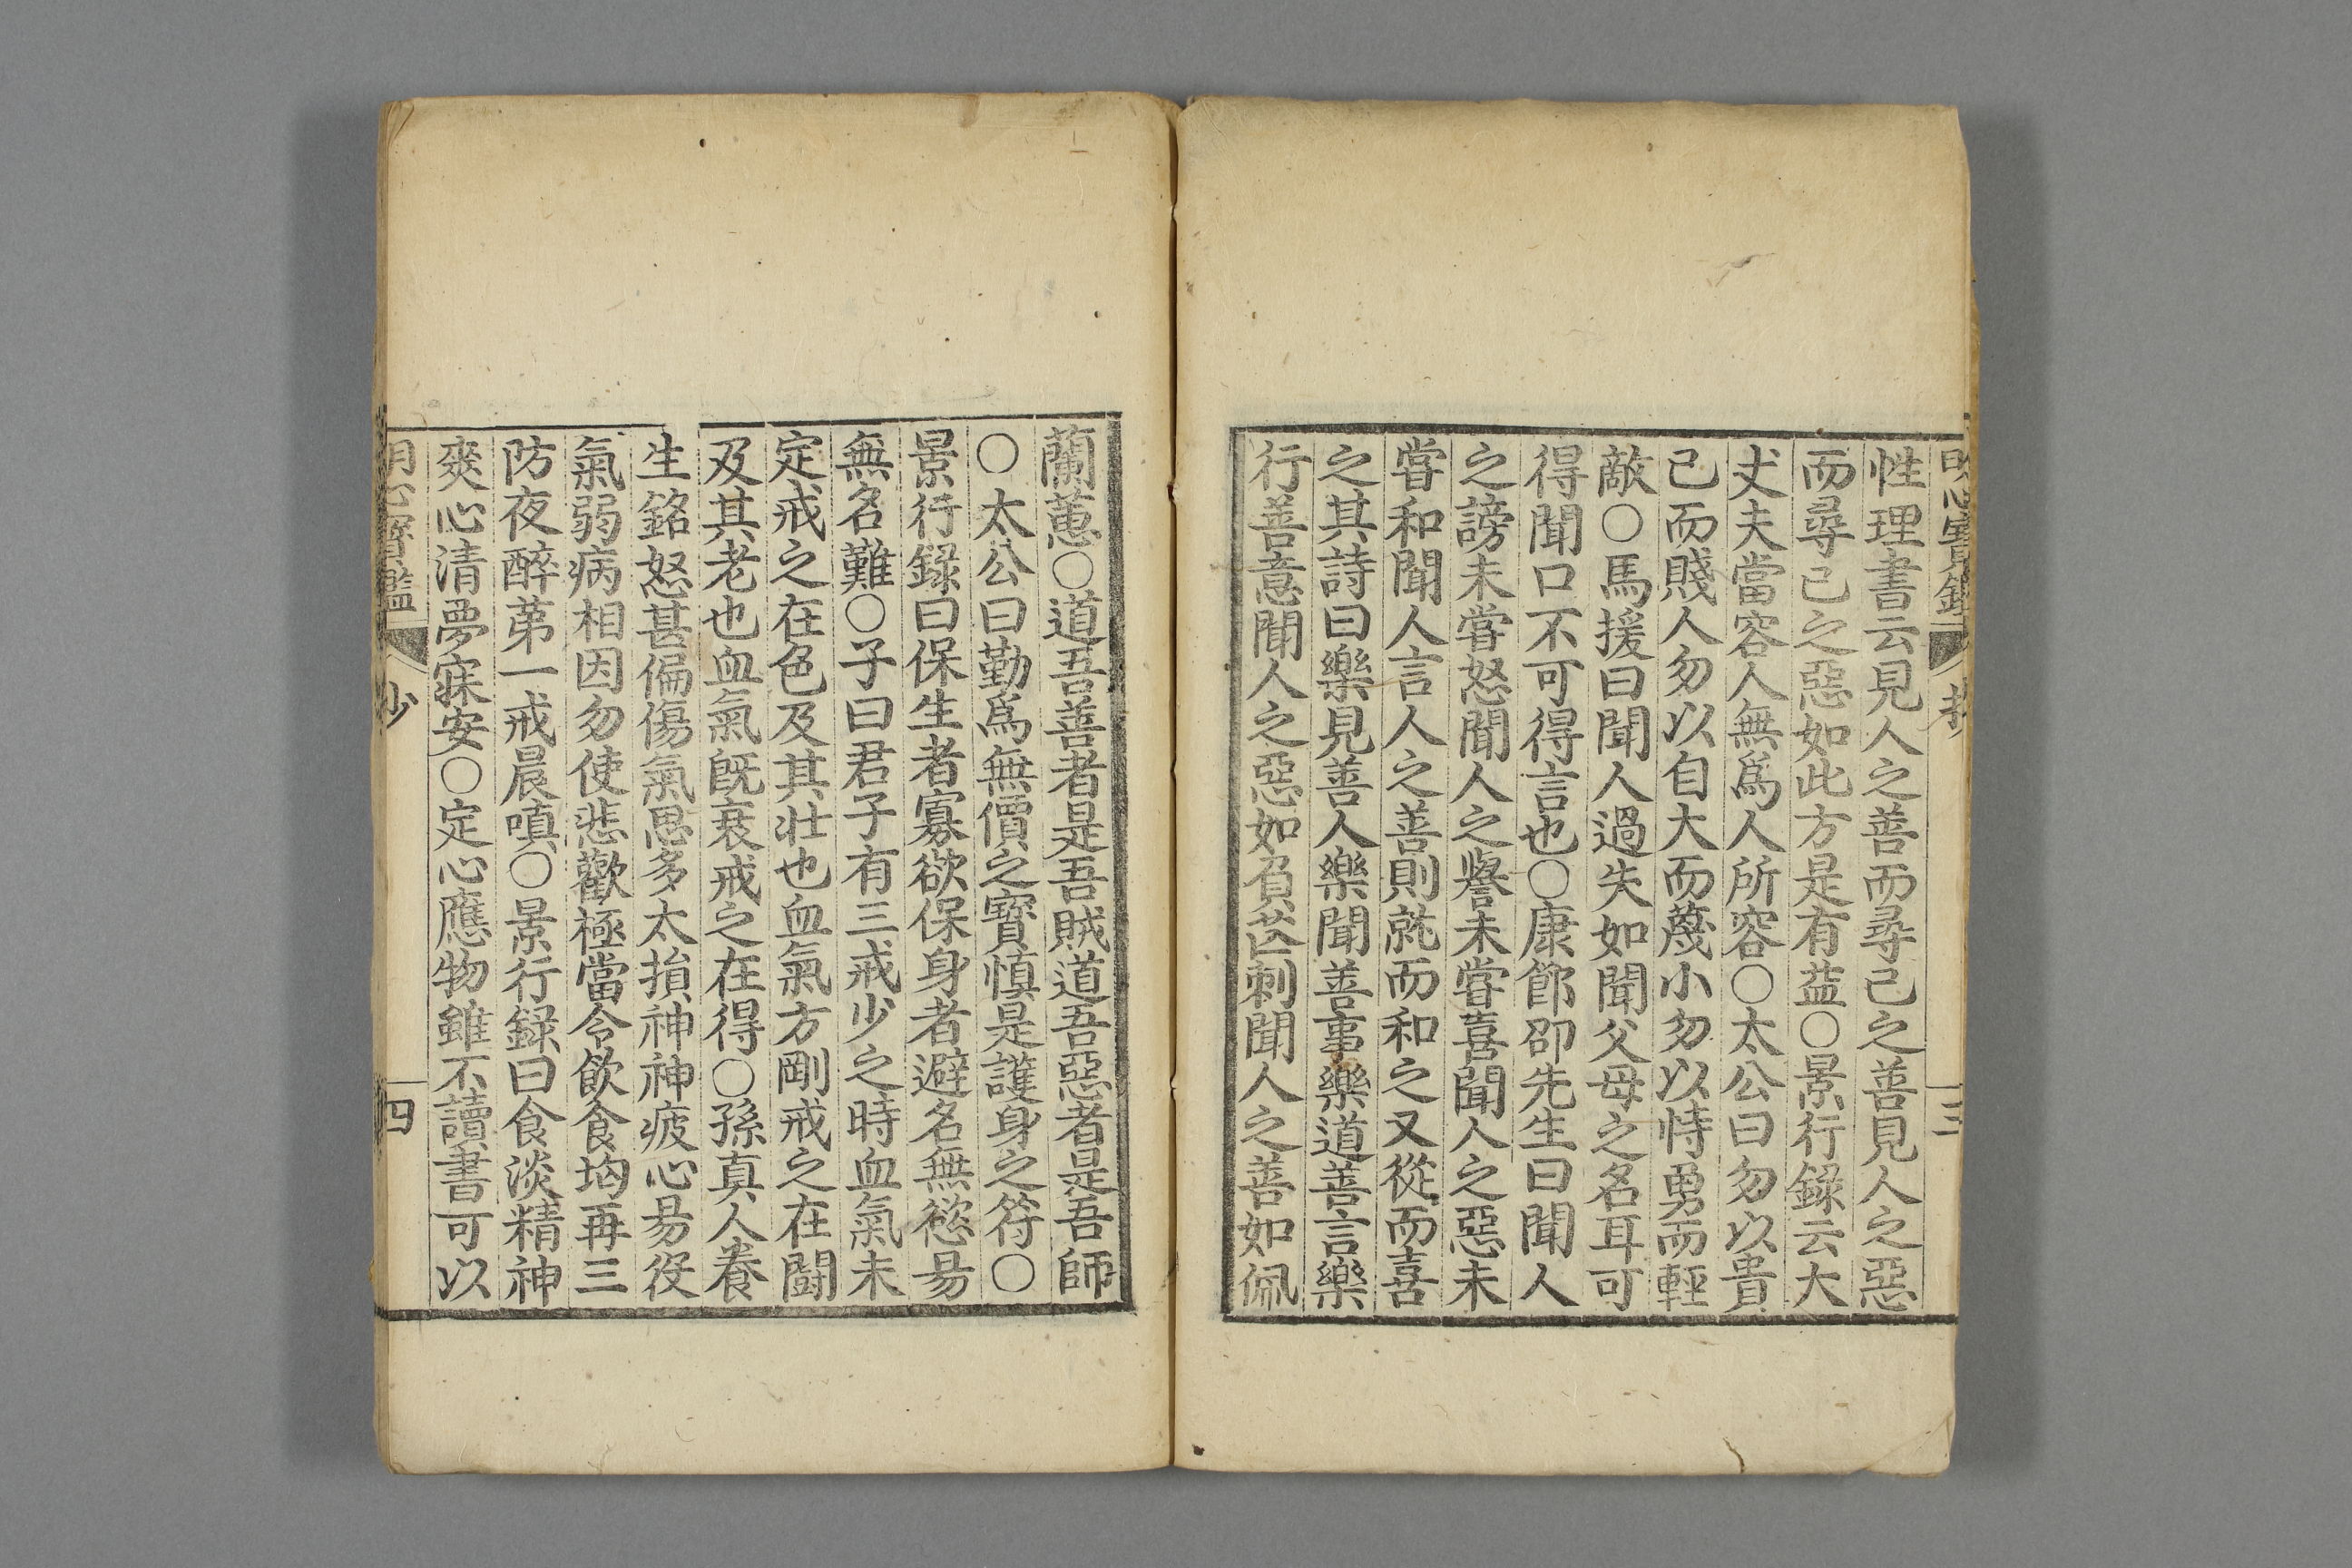 性理書云見人之善而尋己之善見人之惡
而尋己之惡如此方是有益○景行録云大
丈夫當容人無爲人所容○太公曰勿以貴
己而賤人勿以自大而蔑小勿以恃勇而輕
敵○馬援曰聞人過失如聞父母之名耳可
得聞口不可得言也○康節邵先生曰聞人
之謗未甞怒聞人之譽未甞喜聞人之惡未
甞和聞人言人之善則就而和之又從而喜
之其詩曰樂見善人樂聞善事樂道善言樂
行善意聞人之惡如負芒刺聞人之善如佩
蘭蕙○道吾善者是吾賊道吾惡者是吾師
○太公曰勤爲無價之寶慎是護身之符○
景行録曰保生者寡欲保身者避名無慾易
無名難○子曰君子有三戒少之時血氣未
定戒之在色及其壯也血氣方剛戒之在鬪
及其老也血氣旣衰戒之在得○孫真人養
生銘怒甚偏傷氣思多太損神神疲心易役
氣弱病相因勿使悲歡極當令飲食均再三
防夜醉苐一戒晨嗔○景行録曰食淡精神
爽心清夢寐安○定心應物雖不讀書可以
四